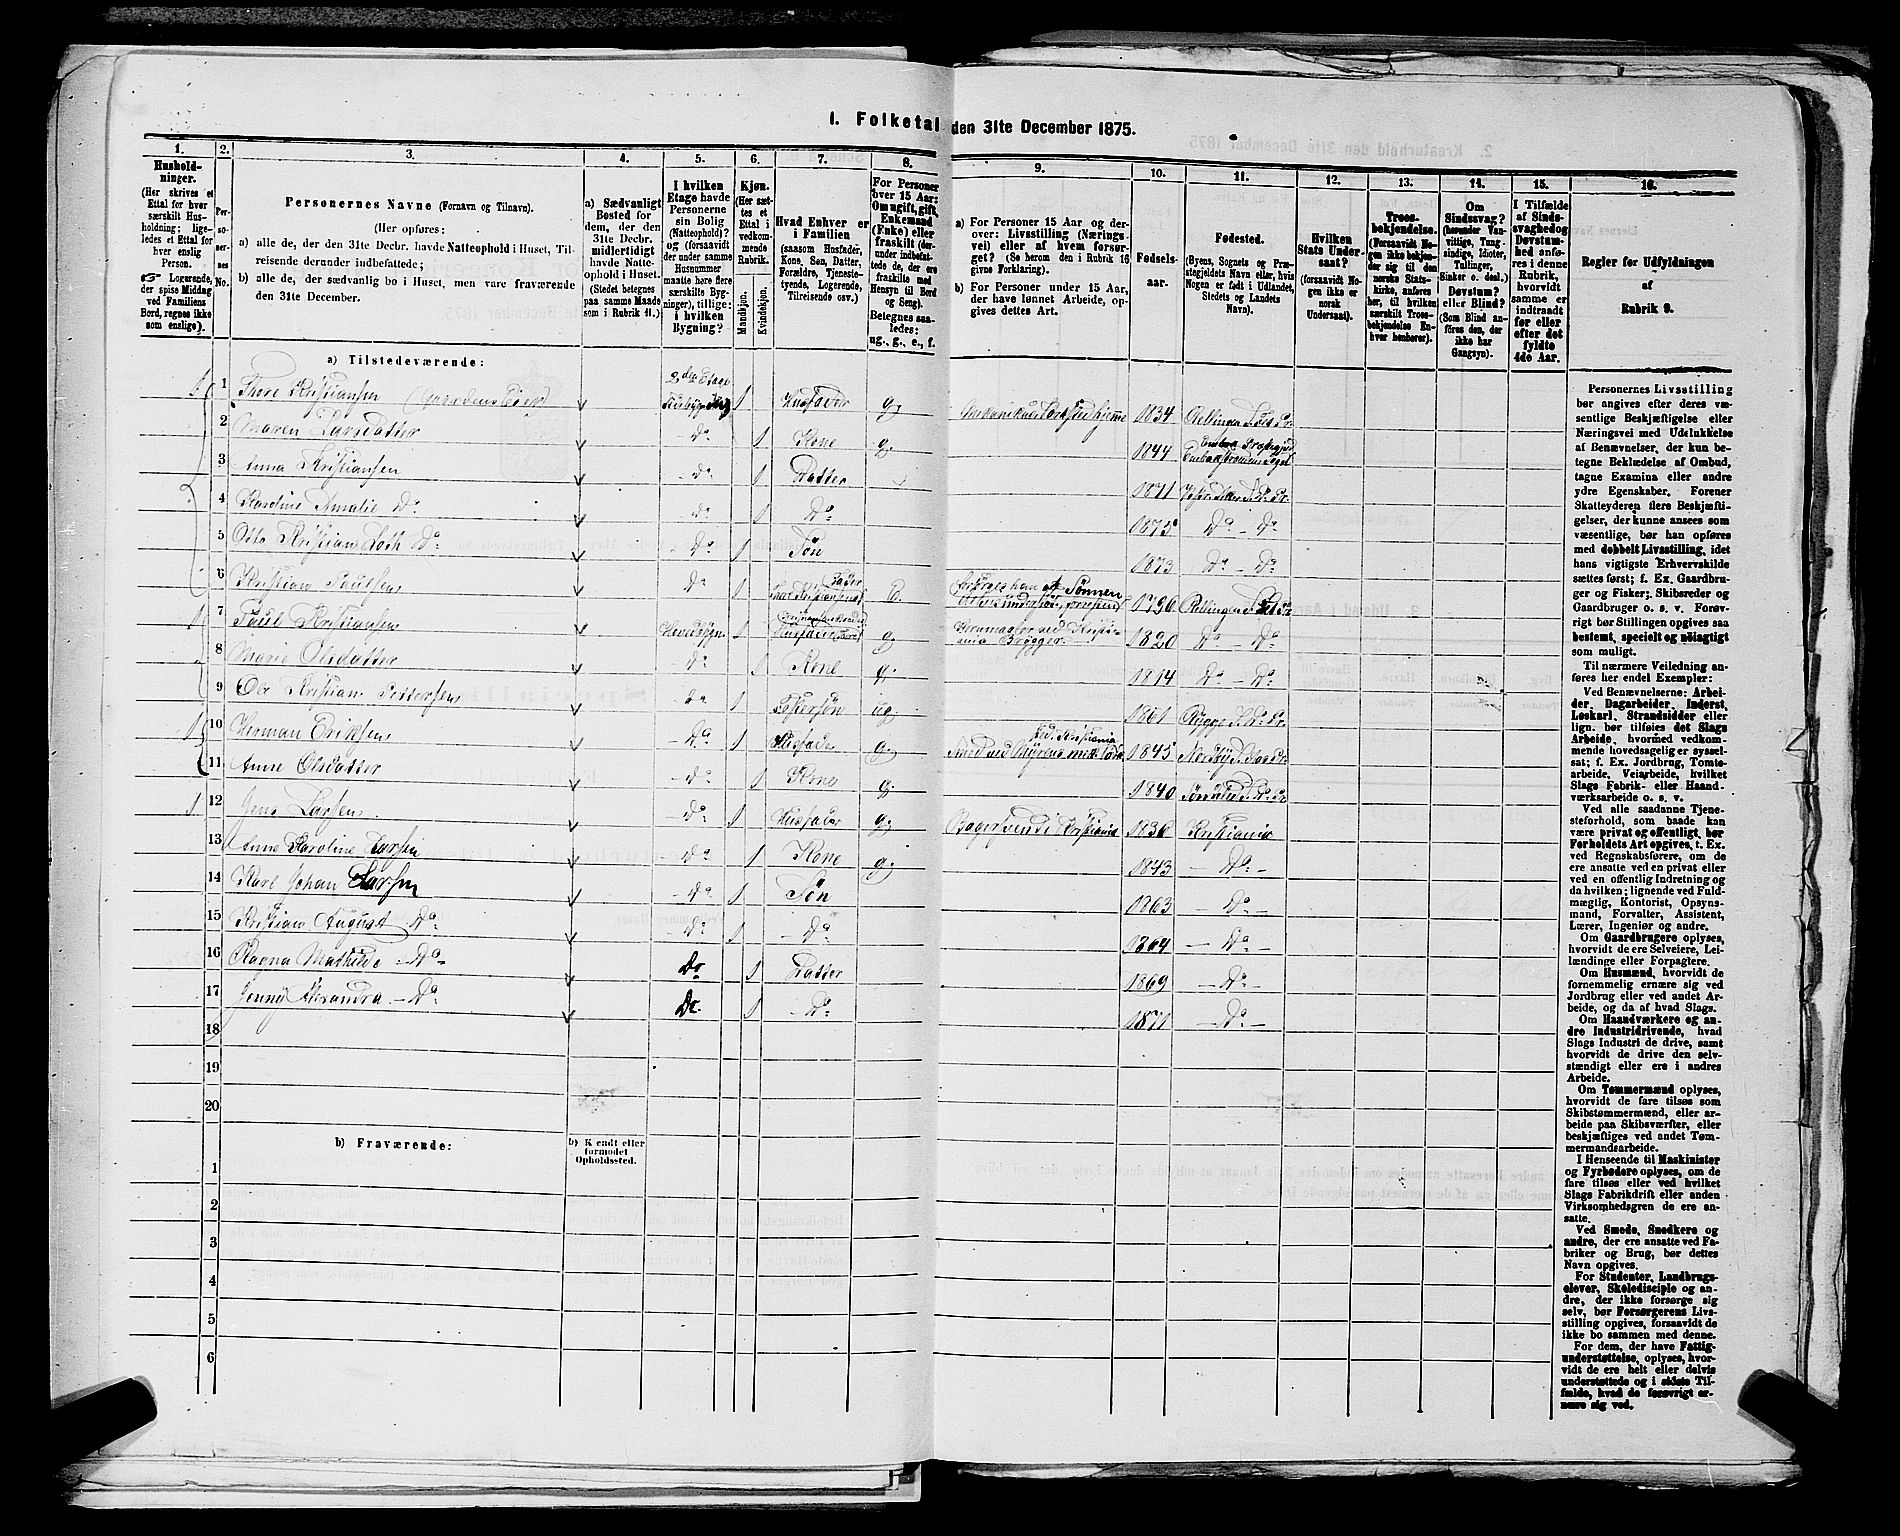 1. Folketal den 31te December 1875.
1.
Husholdninger.
(Her skrives et
Ettal for hver
særskilt Husholdning;
ligeledes et Ettal for
hver enslig
Person.
☞ Logerende,
der spise Middag
ved Familiens
Bord, regnes ikke
som enslige).
2.
Personernes
No.
3.
Personernes Navne (Fornavn og Tilnavn).
(Her opføres:
a) alle de, der den 31te Decbr. havde Natteophold i Huset, Tilreisende derunder indbefattede;
b) alle de, der sædvanlig bo i Huset, men vare fraværende
den 31te December.
4.
a) Sædvanligt
Bosted for
dem, der den
31te Decbr.
midlertidigt
havde Natteophold i Huset.
(Stedet betegnes
paa samme Maade
som i Rubrik 11.)
5.
I hvilken
Etage havde
Personerne
sin Bolig
(Natteophold)?
og (forsaavidt
der under samme
Husnummer
maatte høre flere
særskilte Bygninger), tillige:
i hvilken
Bygning?
6.
Kjøn.
(Her sættes et
Ettal i
vedkommende
Rubrik.)
Mandkjøn.
Kvindekjøn.
7.
Hvad Enhver er
i Familien
(saasom Husfader,
Kone, Søn, Datter,
Forældre, Tjenestetyende, Logerende,
Tilreisende osv.)
8.
For Personer
over 15 Aar:
Om ugift, gift,
Enkemand
(Enke) eller
fraskilt (derunder indbefattede de, der ere
fraskilte med
Hensyn til Bord
og Seng).
Betegnes saaledes:
ug., g., e., f.
9.
a) For Personer 15 Aar og derover: Livsstilling (Næringsvei) eller af hvem forsørget? (Se herom den i Rubrik 16
givne Forklaring).
b) For Personer under 15 Aar,
der have lønnet Arbeide, opgives dettes Art.
10.
Fødselsaar.
11.
Fødested.
(Byens, Sognets og Præstegjeldets Navn eller, hvis
Nogen er født i Udlandet,
Stedets og Landets
Navn).
12.
Hvilken
Stats Undersaat?
(forsaavidt Nogen ikke er
norsk
Undersaat).
13.
Troesbekjendelse.
(Forsaavidt Nogen ikke bekjender sig til den
norske Statskirke, anføres
her, til hvilken
særskilt Troesbekjendelse Enhver henhører).
14.
Om
Sindssvag?
(herunder Vanvittige, Tungsindige, Idioter,
Tullinger,
Sinker o. desl.)
Døvstum?
eller Blind?
(Som Blind anføres den, der
ikke har
Gangsyn).
15.
I Tilfælde
af Sindssvaghed og
Døvstumhed anføres i denne
Rubrik,
hvorvidt
samme er
indtraadt
før eller
efter det
fyldte
4de Aar.
16.
Regler for Udfyldningen
af
Rubrik 9.
a) Tilstedeværende:
1 Thore Kristiansen (Gaardens Eier) 2den Etage 1 Husfader g. 1834
2 Maren Larsdatter Do 1 Kone g. 1844
3 Anna Kristiansen Do 1 Datter 1871
4 Karoline Amalie Do Do 1 Do 1875 Do - Do
5 Otto Kristian Loth Do Do 1 Søn 1873 Do - Do
6 Kristian Paulsen Do 1 Fader E. 1796
7 Paul Kristiansen Hovedbygn 1 g. 1820 Do - Do
8 Marie Olsdatter Do 1 Kone g. 1814 Do - Do
9 Ole Kristian Pettersen Do 1 Fostersøn ug. 1861 Rygge
10 Herman Eriksen Do 1 Husfader g. 1845
11 Anne Olsdatter Do 1 Kone g. 1840
12 Jens Larsen Do 1 Husfader g. Bagersvend i Kristiania 1836 Kristiania
13 Anne Karoline Larsen Do 1 Kone g. 1843 Do
14 Karl Johan Larsen Do 1 Søn 1863 Do
15 Kristian August Do Do 1 Do 1864 Do
16 Ragna Mathilde Do Do 1 Datter 1869 Do
17 Jenny Alexandra Do Do 1 Do 1871 Do
18
19
20
b) Fraværende:
b) Kjendt eller
formodet
Opholdssted.
1
2
3
4
5
6
Personernes Livsstilling
bør angives efter deres væsentlige Beskjæftigelse eller
Næringsvei med Udelukkelse
af Benævnelser, der kun betegne Beklædelse af Ombud,
tagne Examina eller andre
ydre Egenskaber. Forener
Skatteyderen flere Beskjæftigelser, der kunne ansees som
væsentlige, bør han opføres
med dobbelt Livsstilling, idet
hans vigtigste Erhvervskilde
sættes først; f. Ex. Gaardbruger og Fisker; Skibsreder og
Gaardbruger o. s. v. Forøvrigt bør Stillingen opgives saa
bestemt, specielt og nøiagtigt
som muligt.
Til nærmere Veiledning anføres her endel Exempler:
Ved Benævnelserne: Arbeider, Dagarbeider, Inderst,
Løskarl, Strandsidder eller
lign. bør tilføies det Slags
Arbeide, hvormed vedkommende hovedsagelig er sysselsat; f. Ex. Jordbrug, Tomtearbeide, Veiarbeide, hvilket
Slags Fabrik- eller Haandværksarbeide o. s. v.
Ved alle saadanne Tjenesteforhold, som baade kan
være privat og offentligt, bør
Forholdets Art opgives, t. Ex.
ved Regnskabsførere, om de
ere ansatte ved en privat eller
ved en offentlig Indretning og
da hvilken; lignende ved Fuldmægtig, Kontorist, Opsynsmand, Forvalter, Assistent,
Lærer, Ingeniør og andre.
Om Gaardbrugere oplyses,
hvorvidt de ere Selveiere, Leilændinge eller Forpagtere.
Om Husmænd, hvorvidt de
fornemmelig ernære sig ved
Jordbrug eller ved andet Arbeide, og da af hvad Slags.
Om Haandværkere og andre Industridrivende, hvad
Slags Industri de drive, samt
hvorvidt de drive den selvstændigt eller ere i andres
Arbeide.
Om Tømmermænd oplyses,
hvorvidt de fare tilsøs som
Skibstømmermænd, eller arbeide paa Skibsværfter, eller
beskjæftiges ved andet Tømmermandsarbeide.
I Henseende til Maskinister
og Fyrbødere oplyses, om de
fare tilsøs eller ved hvilket
Slags Fabrikdrift eller anden
Virksomhedsgren de ere ansatte.
Ved Smede, Snedkere og
andre, der ere ansatte ved Fabriker og Brug, bør dettes
Navn opgives.
For Studenter, Landbrugselever, Skoledisciple og andre, der ikke forsørge sig
selv, bør Forsørgerens Livsstilling opgives, forsaavidt de
ikke bo sammen med denne.
For dem, der have Fattigunderstøttelse, oplyses, hvorvidt de ere helt eller delvis
understøttede og i sidste Tilfælde, hvad de forøvrigt ernære sig ved.